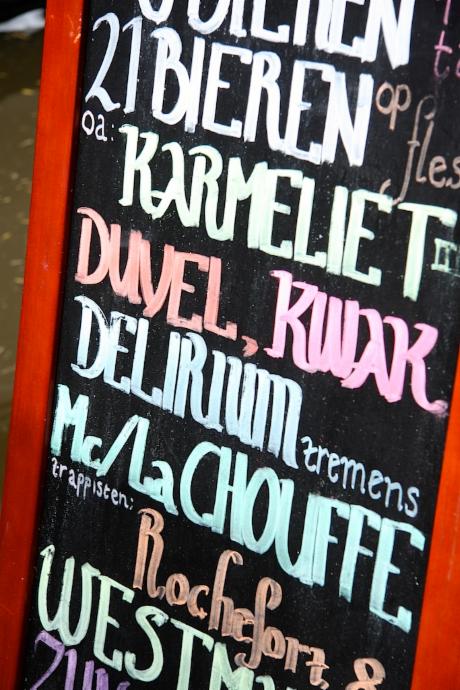 BIEREN
21 BIEREN op fles
oa: KARMELIET
DUVEL, KWAK
DELIRIUM tremens
Mc/La CHOUFFE
trappisten: Rochefort 8
WESTM